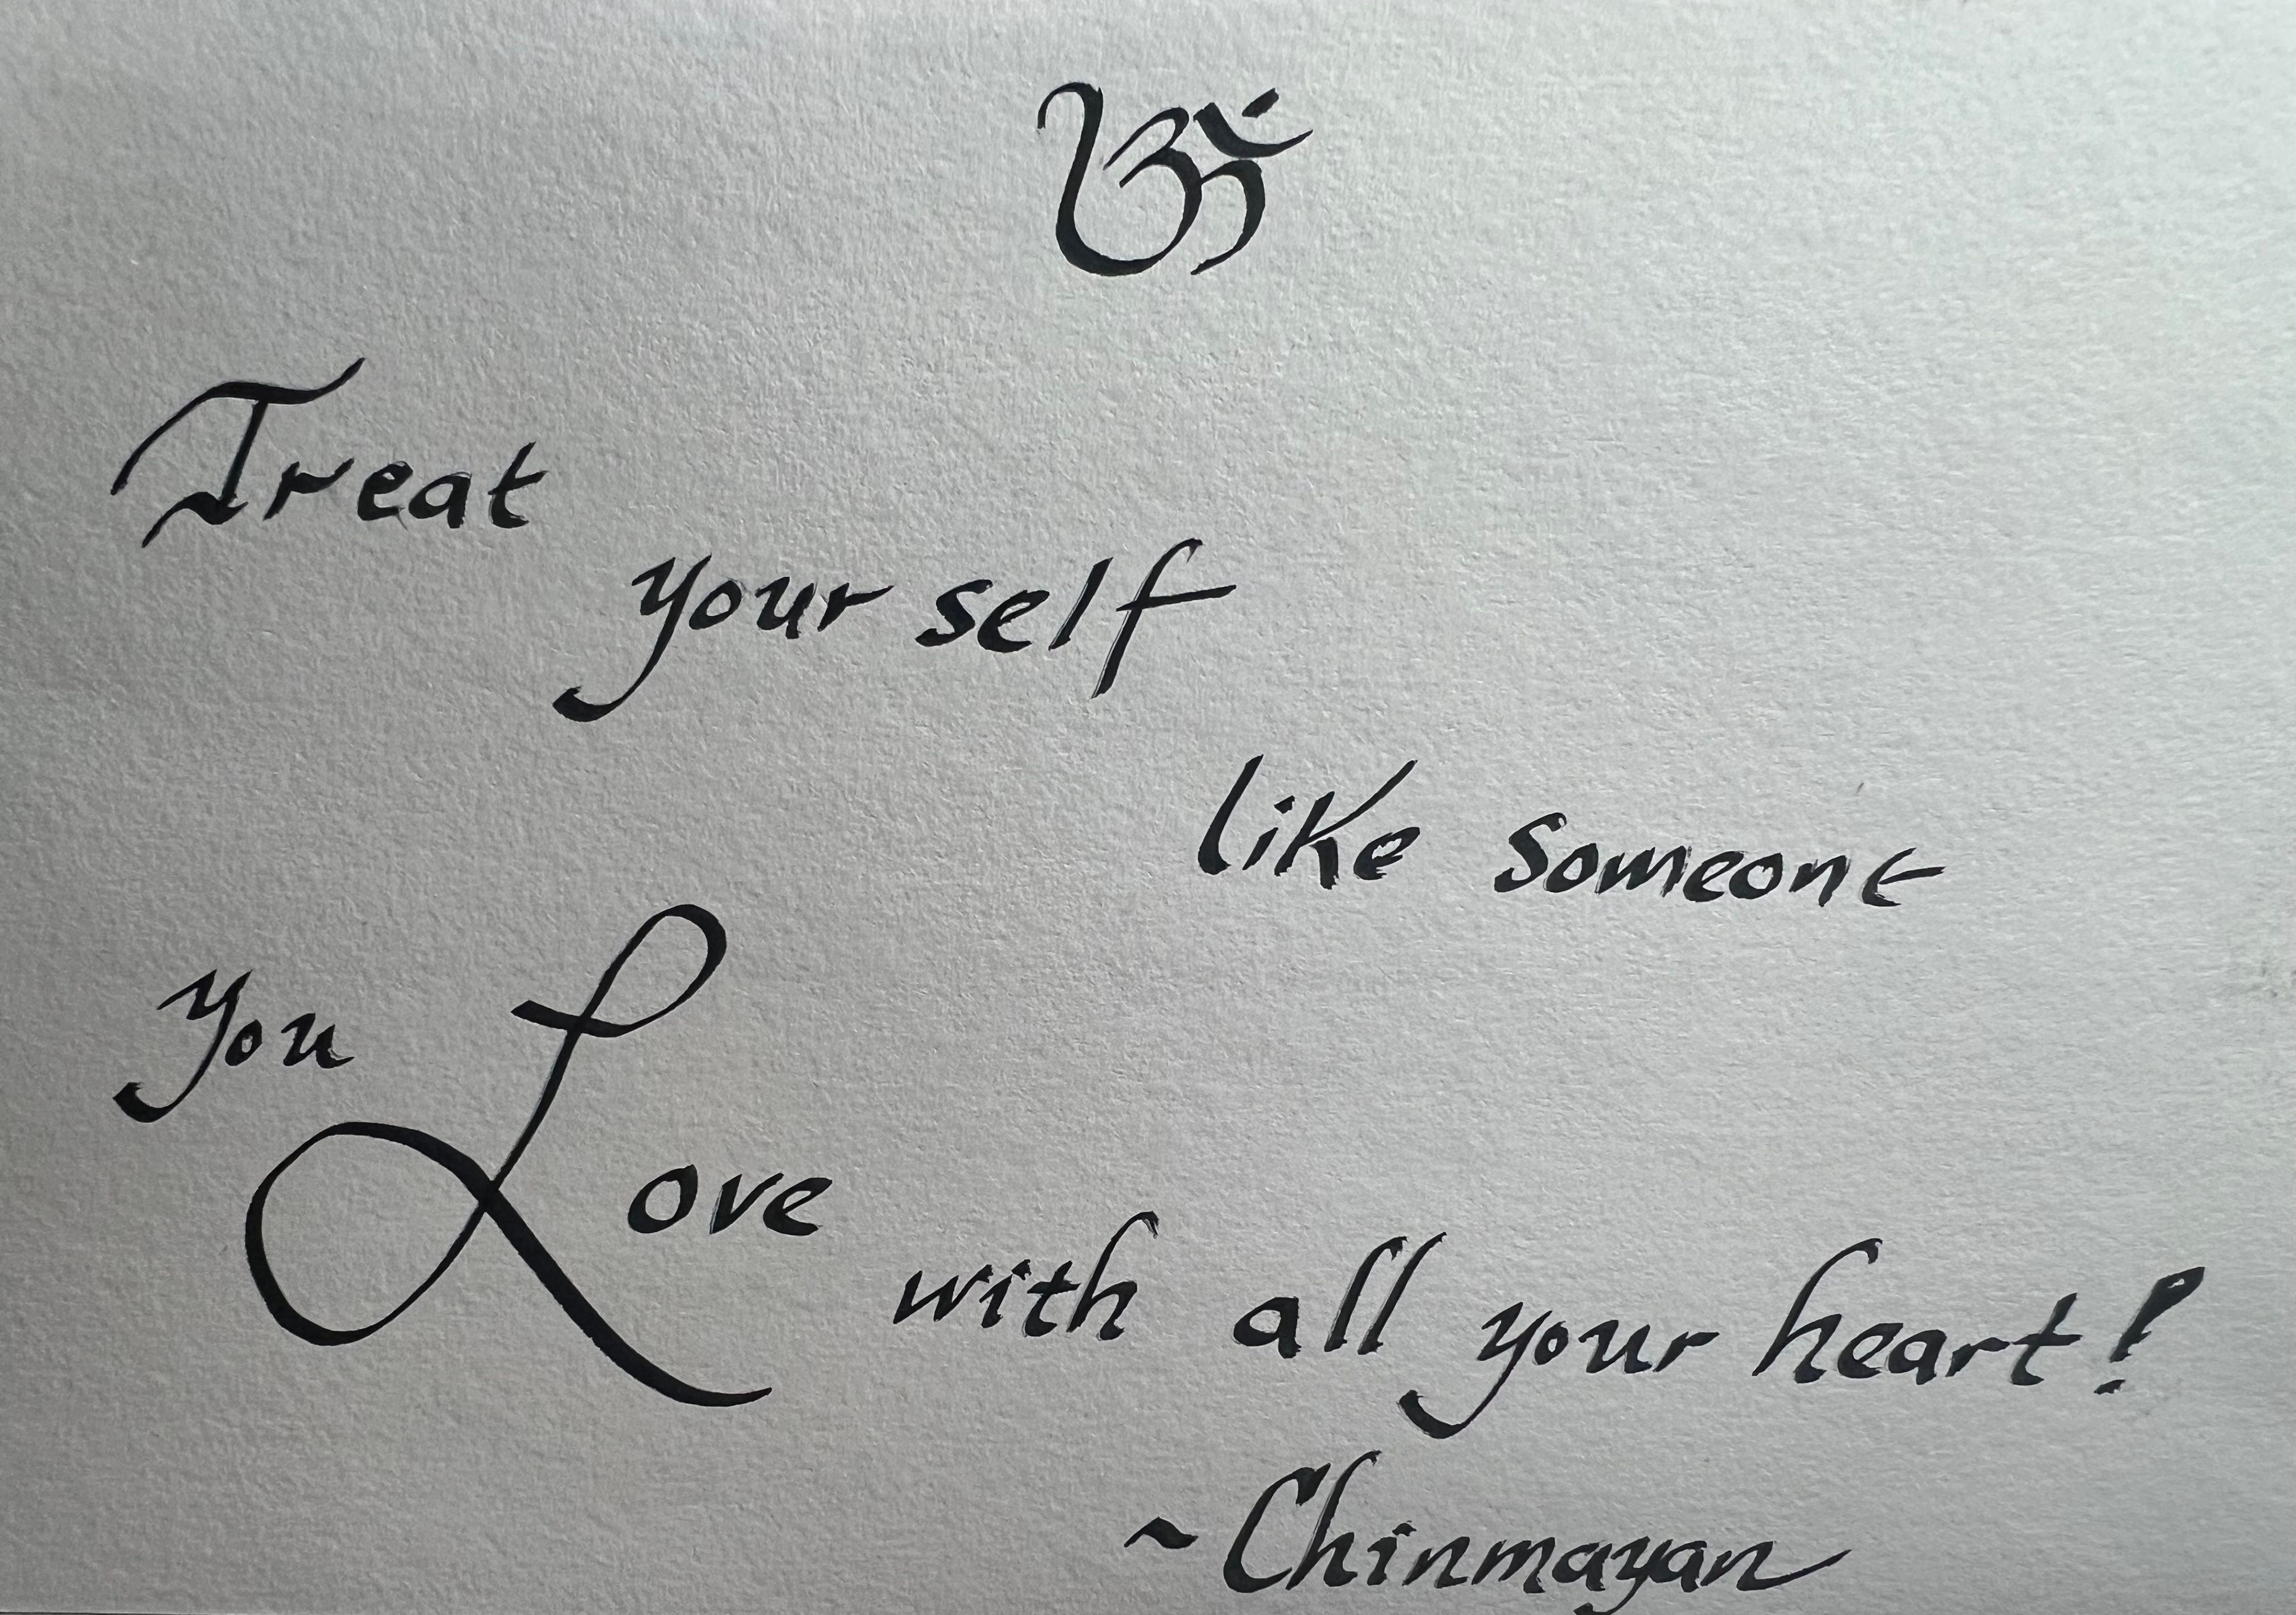 ॐ
Treat
your self
like someone
you Love
with all your heart!
~Chinmayan